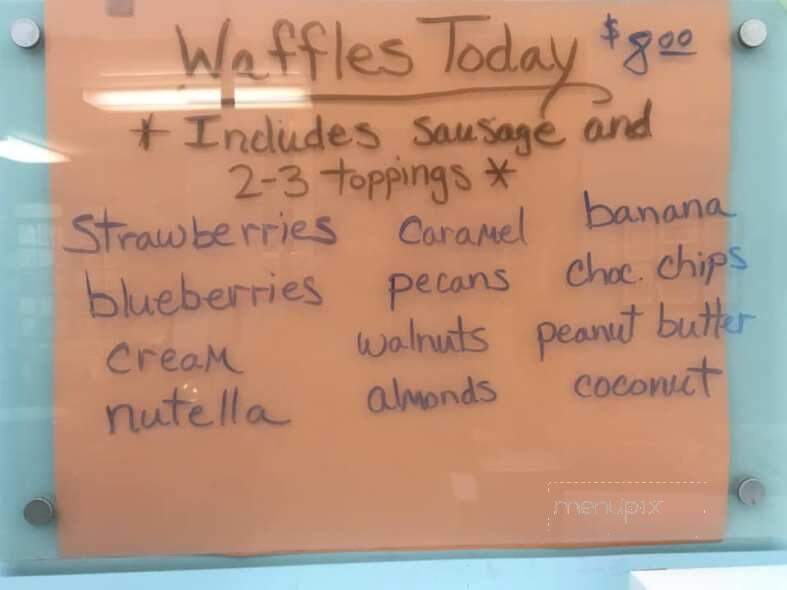 Waffles Today $8.00
* Includes sausage and
2-3 toppings *
Strawberries caramel banana
blueberries pecans choc. chips
cream walnuts peanut butter
nutella almonds coconut
menupix